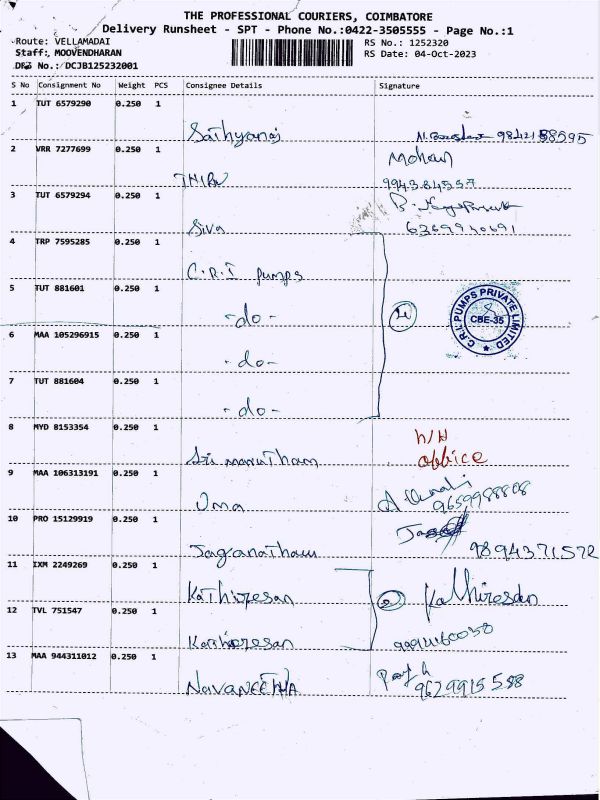 THE PROFESSIONAL COURIERS, COIMBATORE
Delivery Runsheet - SPT - Phone No.:0422-3505555 - Page No.:1
Route: VELLAMADAI
RS No.: 1252320
Staff: MOOVENDHARAN
RS Date: 04-Oct-2023
DRS No.: DCJB125232001
S No Consignment No Weight PCS Consignee Details Signature
1 TUT 6579290 0.250 1
Sathyaraj 98421 58595
2 VRR 7277699 0.250 1 Mohan
THIRU 994384557
3 TUT 6579294 0.250 1 B.
Siva 6369940691
4 TRP 7595285 0.250 1
C.R.I pumps
5 TUT 881601 0.250 1
-do- 4 C.R.I. PUMPS PRIVATE LIMITED CBE-35
6 MAA 105296915 0.250 1
-do-
7 TUT 881604 0.250 1
-do-
8 MYD 8153354 0.250 1 W/H
Sri marutham office
9 MAA 106313191 0.250 1
Uma 9659988808
10 PRO 15129919 0.250 1
Jaganatham 9894371572
11 IXM 2249269 0.250 1
Kathiresan 2 Kathiresan
12 TVL 751547 0.250 1
Kathiresan
13 MAA 944311012 0.250 1
NAVANEETHA 9629915588